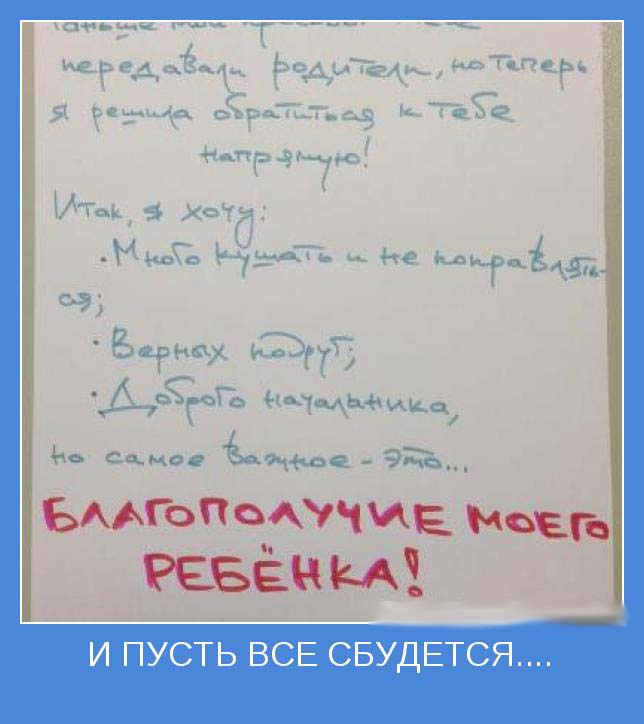 передавали родители, но теперь
я решила обратиться к тебе
напрямую!
Итак, я хочу:
• Много кушать и не поправлять-
ся;
• Верных подруг;
• Доброго начальника,
но самое важное - это...
БЛАГОПОЛУЧИЕ МОЕГО
РЕБЁНКА!
И ПУСТЬ ВСЕ СБУДЕТСЯ....